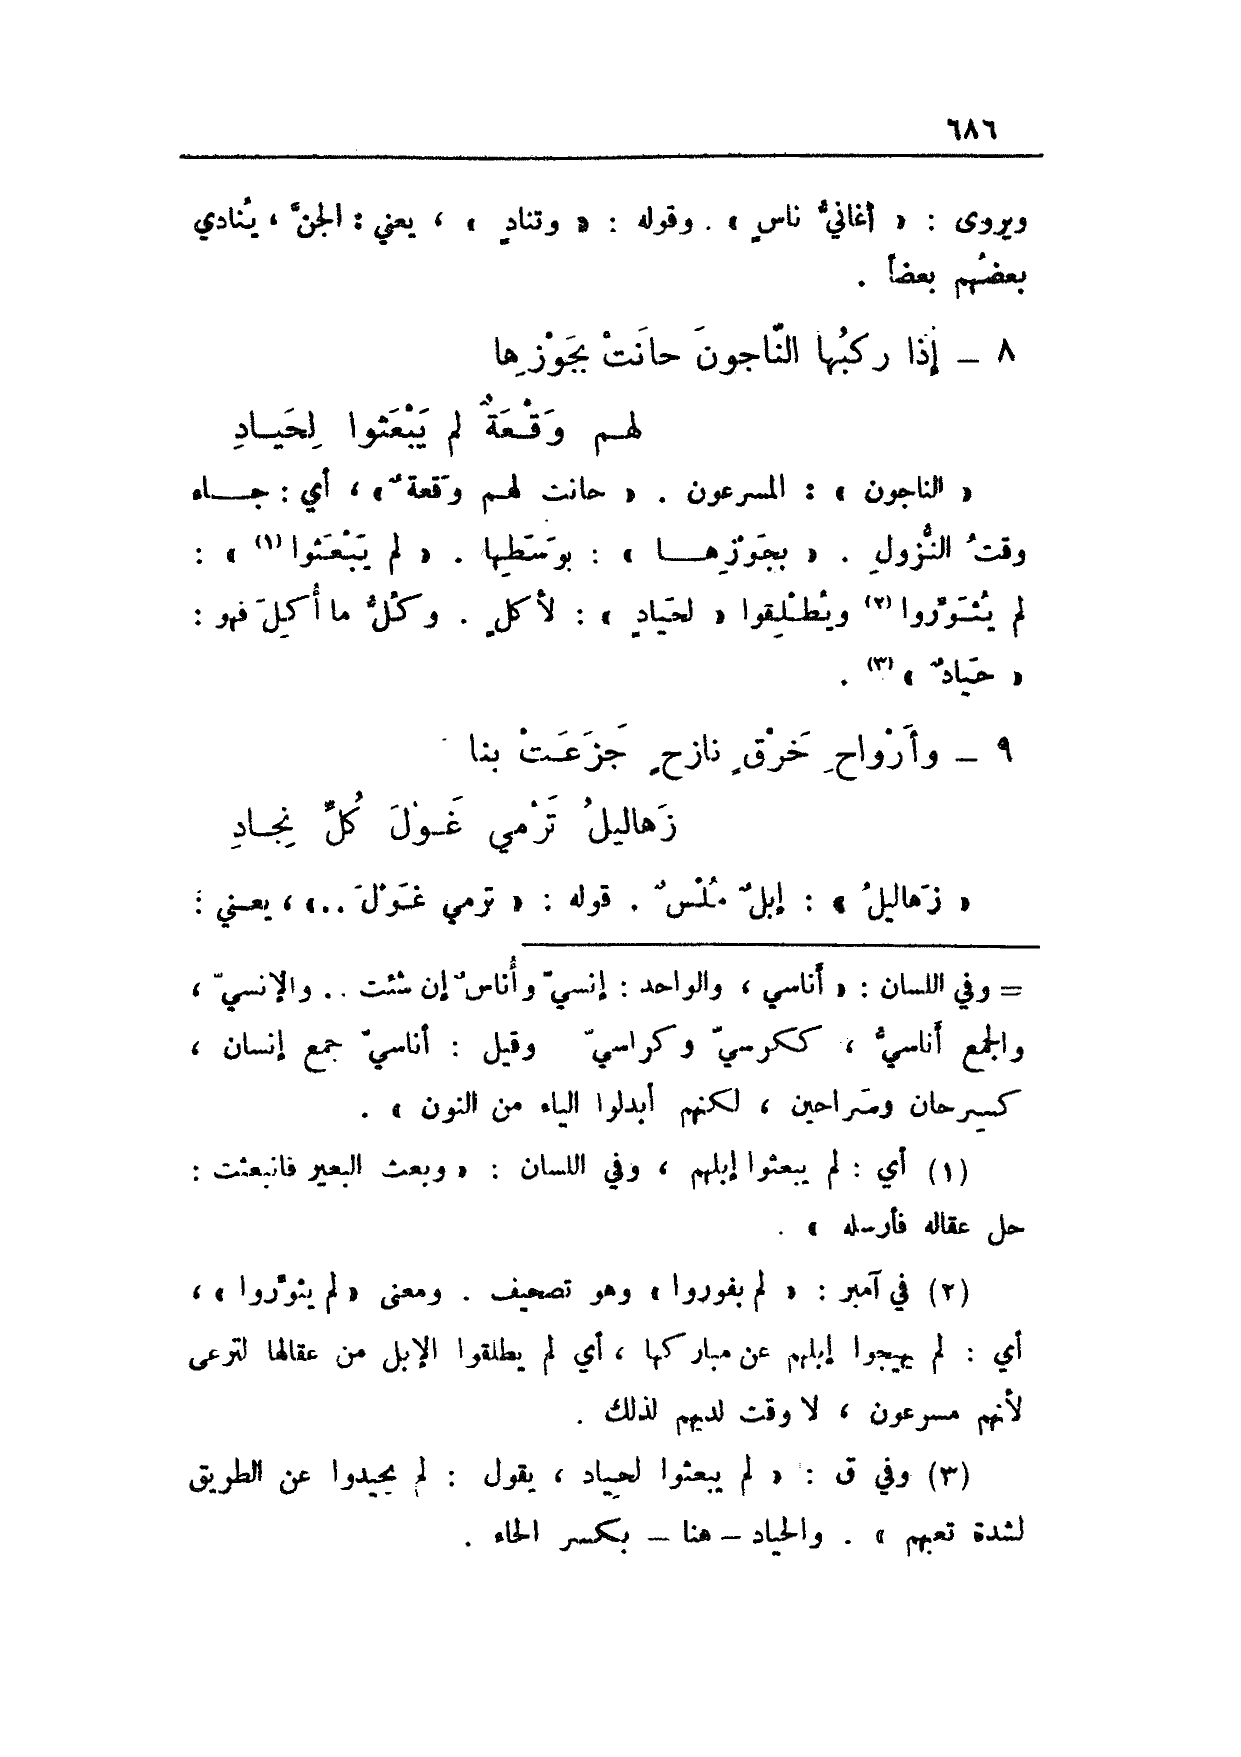 ٦٨٦
ويروى : « أغانيُّ ناسٍ » . وقوله : « وتنادٍ » ، يعني : الجنَّ ، يُنادي
بعضُهم بعضاً .
٨ – إذا ركبُها النّاجونَ حانَتْ بجَوْزِها
لهم وَقْعَةٌ لم يَبْعَثوا لِحَيادِ
« الناجون » : المسرعون . « حانت لهم وَقعةٌ » ، أي : جاء
وقتُ النُّزولِ . « بجَوْزِها » : بوَسَطِها . « لم يَبْعَثوا (١) » :
لم يُثَوِّروا (٢) ويُطْلِقوا « لحَيادٍ » : لأكلٍ . وكُلُّ ما أُكِلَ فهو :
« حَيادٌ » (٣) .
٩ – وأَرْواحِ خَرْقٍ نازحٍ جَزَعَتْ بنا
زَهاليلُ تَرْمي غَوْلَ كُلِّ نِجادِ
« زَهاليلُ » : إبلٌ مُلْسٌ . قوله : « ترمي غَوْلَ .. » ، يعني :
= وفي اللسان : « أَناسي ، والواحد : إنسيّ وأُناسٌ إن شئت .. والإنسيّ ،
والجمع أَناسيُّ ، ككرسيّ وكراسيّ وقيل : أناسيّ جمع إنسان ،
كسِرحان وسَراحين ، لكنهم أبدلوا الياء من النون » .
(١) أي : لم يبعثوا إبلهم ، وفي اللسان : « وبعث البعير فانبعثت :
حل عقاله فأرسله » .
(٢) في آمبر : « لم يفوروا » وهو تصحيف . ومعنى « لم يثوّروا » ،
أي : لم يهيجوا إبلهم عن مباركها ، أي لم يطلقوا الإبل من عقالها لترعى
لأنهم مسرعون ، لا وقت لديهم لذلك .
(٣) وفي ق : « لم يبعثوا لحياد ، يقول : لم يحيدوا عن الطريق
لشدة تعبهم » . والحياد – هنا – بكسر الحاء .